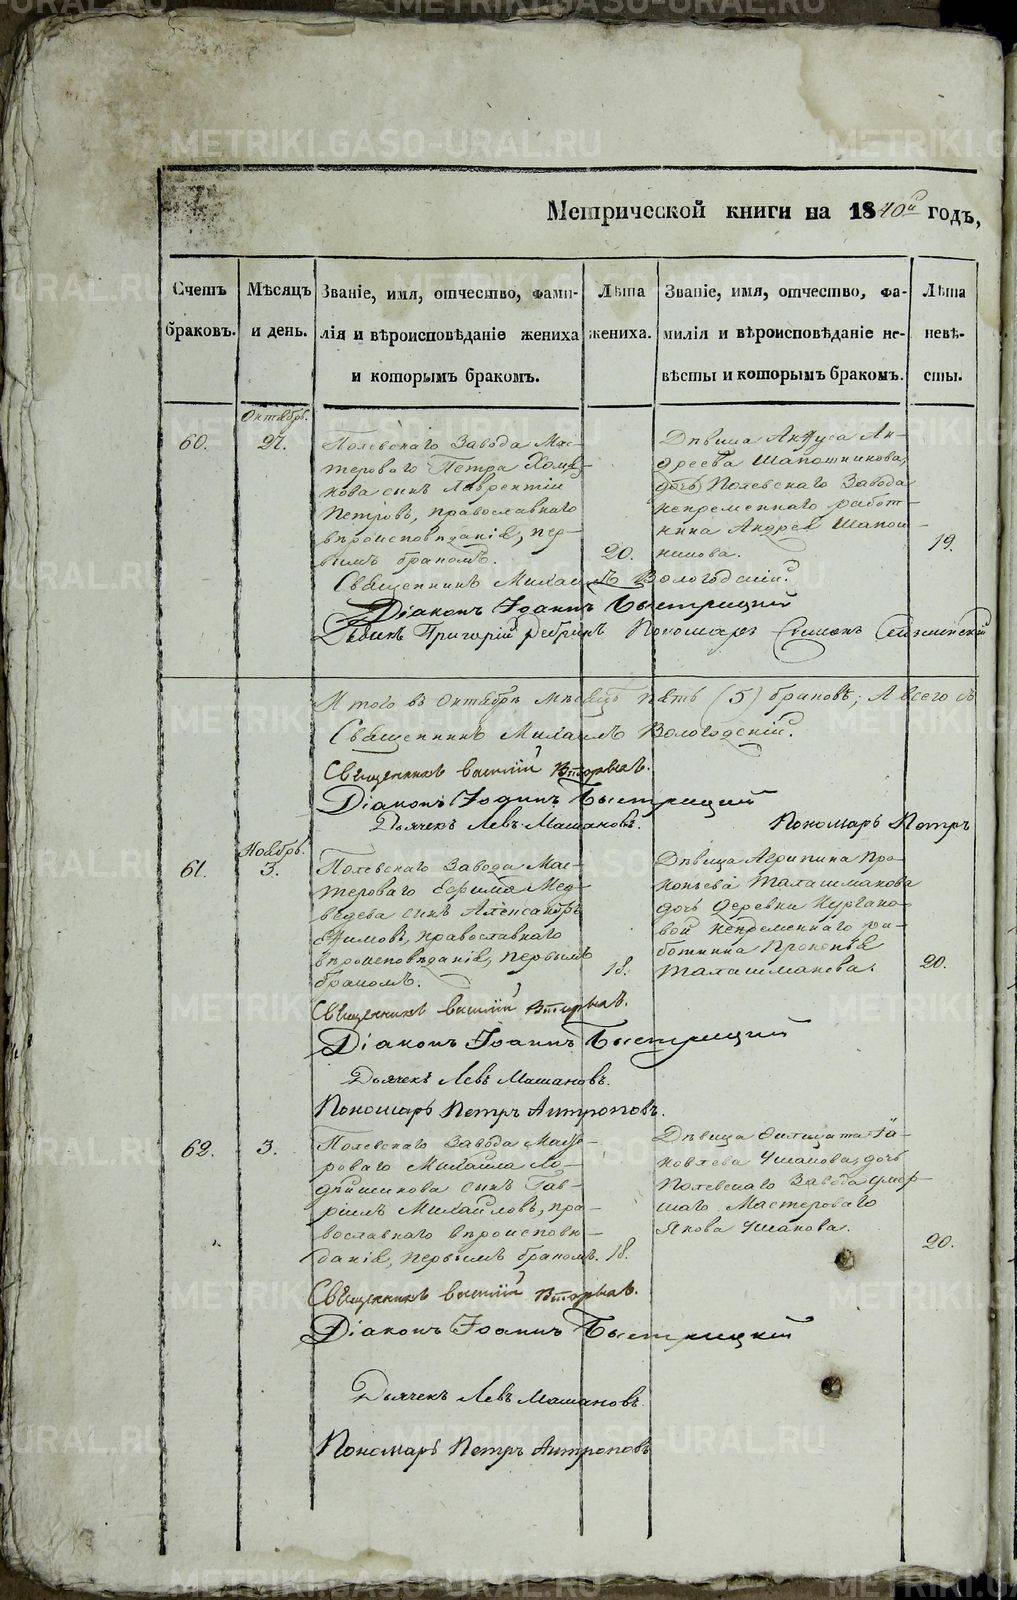 Метрической книги на 1840й годъ,
Счетъ браковъ.
Мѣсяцъ и день.
Званіе, имя, отчество, фами-
лія и вѣроисповѣданіе жениха
и которымъ бракомъ.
Лѣта жениха.
Званіе, имя, отчество, фа-
милія и вѣроисповѣданіе не-
вѣсты и которымъ бракомъ.
Лѣта невѣ-
сты.
Октябрь.
60.
27.
Полевскаго Завода Мас-
тероваго Петра
сынъ Лаврентій
Петровъ, православнаго
вѣроисповѣданія, пер-
вымъ бракомъ.
20.
Дѣвица Ан-
дреева Шапошникова,
дочь Полевскаго Завода
непременнаго работ-
ника Андрея Шапош-
никова.
19.
Священникъ Михаилъ Вологодскій.
Діаконъ Іоаннъ Быстрицкій
Григорій Пономарь Симонъ
Итого въ Октябрѣ мѣсяцѣ пять (5) браковъ; А всего съ
Священникъ Михаилъ Вологодскій.
Священникъ Василій
Діаконъ Іоаннъ Быстрицкій
Дьячекъ Левъ Машановъ.
Пономарь Петръ
Ноябрь.
61.
3.
Полевскаго Завода Мас-
тероваго Ефима Мед-
ведева сынъ Александръ
Ефимовъ, православнаго
вѣроисповѣданія, первымъ
бракомъ.
18.
Дѣвица Агрипина Про-
копьева Талашманова
дочь деревни Кургано-
вой непременнаго ра-
ботника Прокопья
Талашманова.
20.
Священникъ Василій
Діаконъ Іоаннъ Быстрицкій
Дьячекъ Левъ Машановъ.
Пономарь Петръ Антроповъ.
62.
3.
Полевскаго Завода Масте-
роваго Михаила Ло-
сынъ Гав-
рилъ Михайловъ, пра-
вославнаго вѣроисповѣ-
данія, первымъ бракомъ.
18.
Дѣвица Я-
ковлева Ушакова, дочь
Полевскаго Завода умер-
шаго Мастероваго
Якова Ушакова.
20.
Священникъ Василій
Діаконъ Іоаннъ Быстрицкій
Дьячекъ Левъ Машановъ.
Пономарь Петръ Антроповъ
METRIKI.GASO-URAL.RU